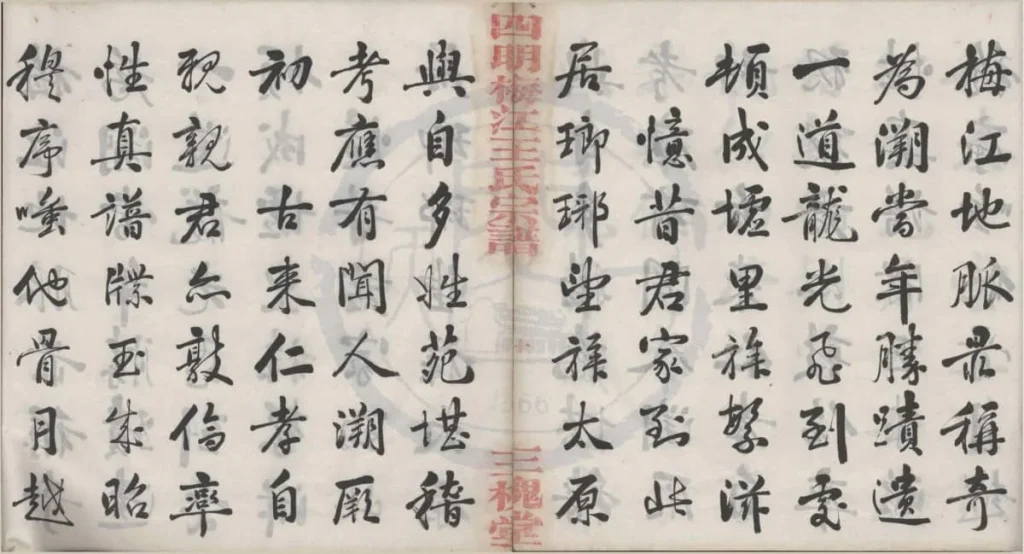 梅江地脈最稱奇
為溯當年勝蹟遺
一道龍光飛到處
頓成墟里族繁滋
憶昔君家到此
居瑯琊望族太原
四明梅江王氏宗譜
三槐堂
與自多姓苑堪稽
考應有聞人溯厥
初古来仁孝自
親親君亦敦倫率
性真譜牒玉成昭
穆序嗤他骨月越